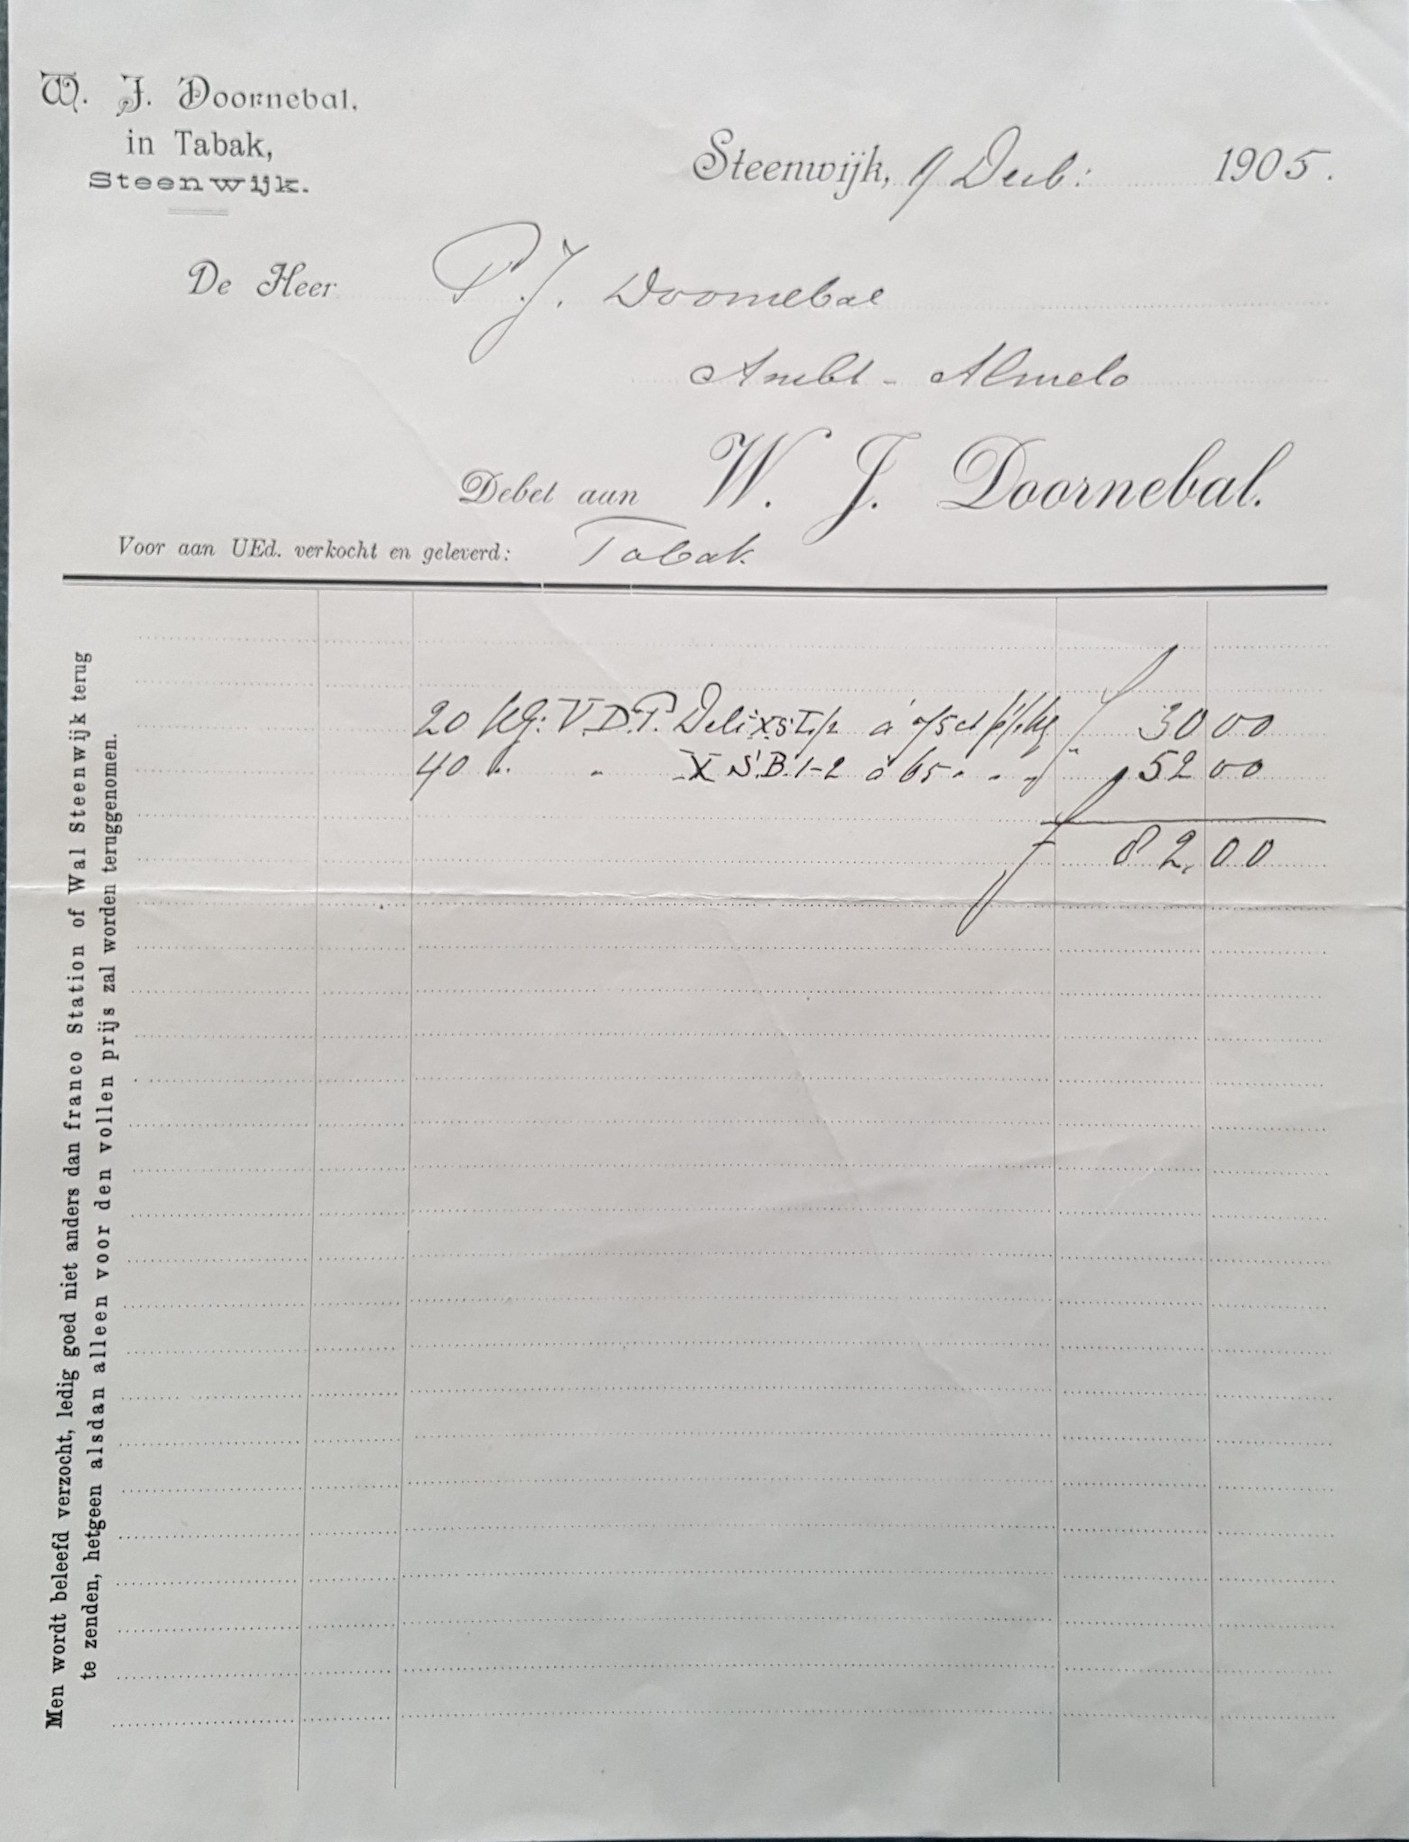 W. J. Doornebal.
in Tabak,
Steenwijk.
Steenwijk, 9 Decb: 1905.
De Heer P. J. Doornebal
Ambt - Almelo
Debet aan W. J. Doornebal.
Voor aan UEd. verkocht en geleverd: Tabak
20 Kg: V.D.T. Deli à ƒ 30 00
40 " " X S.B. 1-2 à 65 " " " " 52 00
ƒ 82.00
Men wordt beleefd verzocht, ledig goed niet anders dan franco Station of Wal Steenwijk terug
te zenden, hetgeen alsdan alleen voor den vollen prijs zal worden teruggenomen.